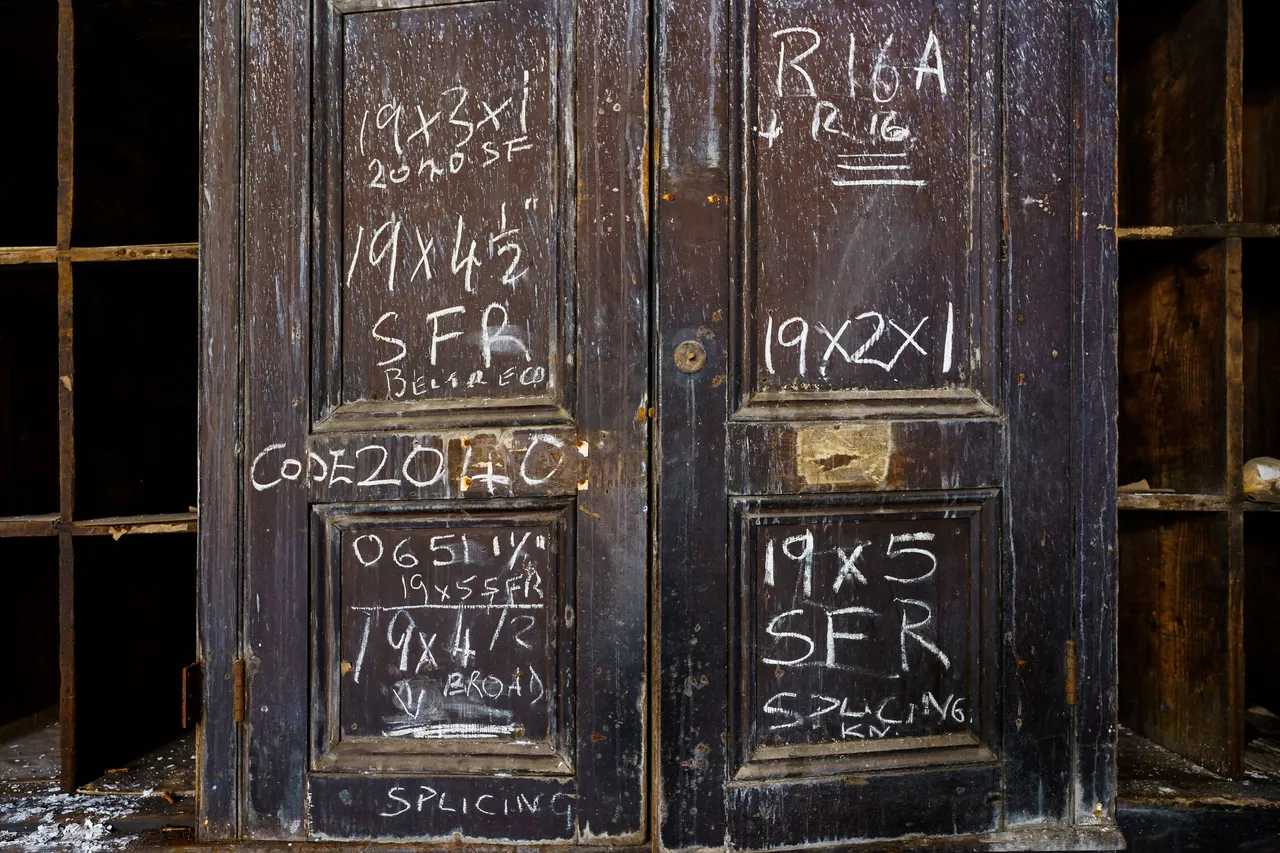 19x3x1
2040 SF
19x4½"
SFR
CODE 2040
0651 1½"
19x5 SFR
19x4 1/2
V BROAD
SPLICING
R 16A
+ R 16
19x2x1
19x5
SFR
SPLICING
KN.